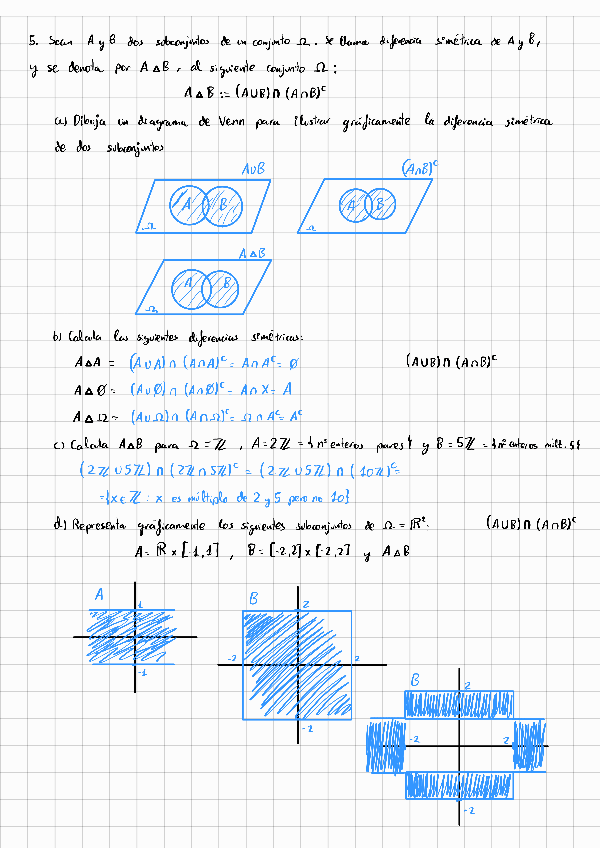 5. Sean A y B dos subconjuntos de un conjunto Ω. Se llama diferencia simétrica de A y B,
y se denota por A △ B, al siguiente conjunto Ω:
A △ B := (A∪B) ∩ (A∩B)ᶜ
(a) Dibuja un diagrama de Venn para ilustrar gráficamente la diferencia simétrica
de dos subconjuntos
A∪B
(A∩B)ᶜ
A B
A B
Ω
Ω
A △ B
A B
Ω
b) Calcula las siguientes diferencias simétricas:
A △ A = (A∪A) ∩ (A∩A)ᶜ = A∩Aᶜ = Ø
(A∪B) ∩ (A∩B)ᶜ
A △ Ø = (A∪Ø) ∩ (A∩Ø)ᶜ = A∩X = A
A △ Ω = (A∪Ω) ∩ (A∩Ω)ᶜ = Ω∩Aᶜ = Aᶜ
c) Calcula A△B para Ω = ℤ, A = 2ℤ = {nº enteros pares} y B = 5ℤ = {nº enteros múlt. 5}
(2ℤ∪5ℤ) ∩ (2ℤ∩5ℤ)ᶜ = (2ℤ∪5ℤ) ∩ (10ℤ)ᶜ =
= {x∈ℤ : x es múltiplo de 2 y 5 pero no 10}
d) Representa gráficamente los siguientes subconjuntos de Ω = ℝ².
(A∪B) ∩ (A∩B)ᶜ
A = ℝ × [-1,1] , B = [-2,2] × [-2,2] y A △ B
A
1
-1
B
2
-2
2
-2
B
2
-2
2
-2